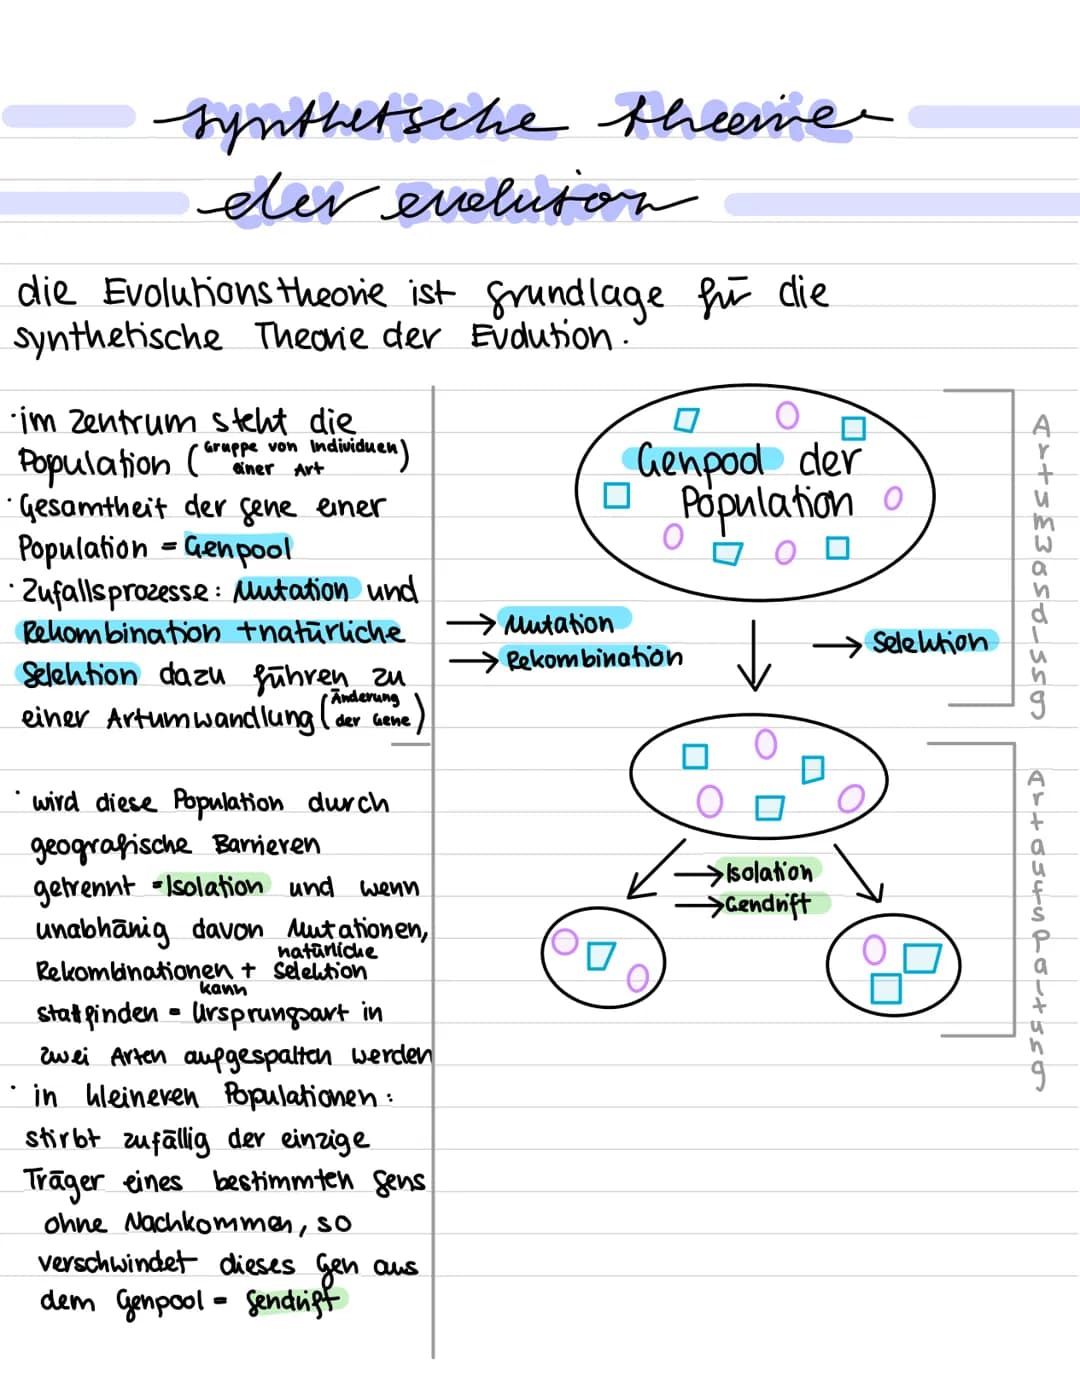 synthetische Theorie
der evolution
die Evolutionstheorie ist Grundlage für die
synthetische Theorie der Evolution.
·im Zentrum steht die
Population (Gruppe von Individuen
einer Art)
·Gesamtheit der Gene einer
Population = Genpool
·Zufallsprozesse: Mutation und
Rekombination +natürliche
Selektion dazu führen zu
einer Artumwandlung (Änderung
der Gene)
· wird diese Population durch
geografische Barrieren
getrennt =Isolation und wenn
unabhänig davon Mutationen,
Rekombinationen + natürliche Selektion
statfinden = kann Ursprungsart in
zwei Arten aufgespalten werden
· in kleineren Populationen:
stirbt zufällig der einzige
Träger eines bestimmten Gens
ohne Nachkommen, so
verschwindet dieses Gen aus
dem Genpool = Gendrift
Genpool der
Population
→ Mutation
→ Rekombination
→ Selektion
Artumwandlung
→Isolation
→Gendrift
Artaufspaltung